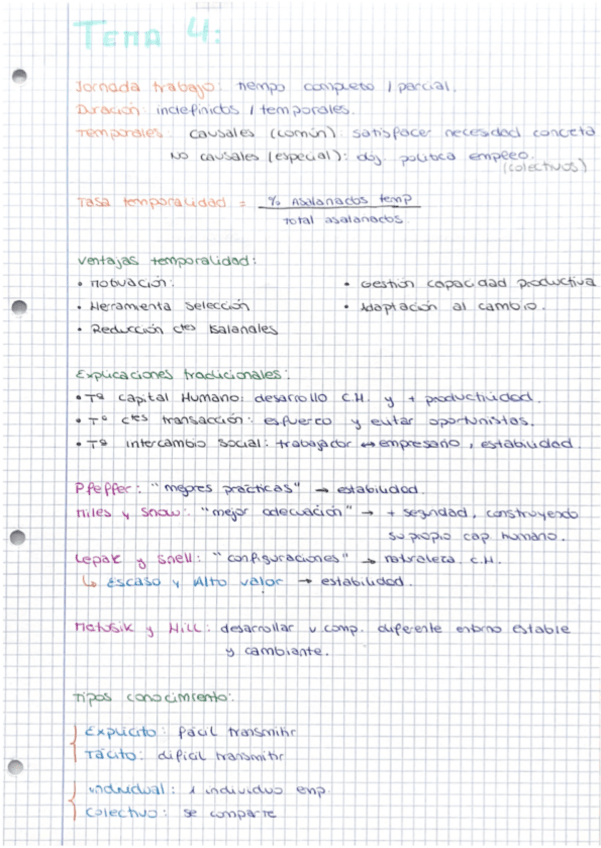 TEMA 4:
Jornada trabajo: tiempo completo / parcial.
Duración: indefinidos / temporales.
Temporales: causales (común): satisfacer necesidad concreta
NO causales (especial): obj. política empleo.
(colectivos)
Tasa temporalidad = % Asalariados temp
Total asalariados
Ventajas temporalidad:
• Motivación.
• Gestión capacidad productiva
• Herramienta selección
• Adaptación al cambio.
• Reducción ctes salariales
Explicaciones tradicionales:
• Tª Capital Humano: desarrollo C.H. y + productividad.
• Tª ctes transacción: esfuerzo y evitar oportunistas.
• Tª intercambio social: trabajador ↔ empresario, estabilidad.
Pfeffer: "mejores prácticas" → estabilidad.
Miles y Snow: "mejor adecuación" → + seguridad, construyendo
su propio cap. humano.
Lepak y Snell: "configuraciones" → naturaleza C.H.
↳ Escaso y Alto valor → estabilidad.
Matusik y Hill: desarrollar v. comp. diferente entorno estable
y cambiante.
Tipos conocimiento:
Explícito: fácil transmitir
Tácito: difícil transmitir
Individual: 1 individuo emp.
Colectivo: se comparte